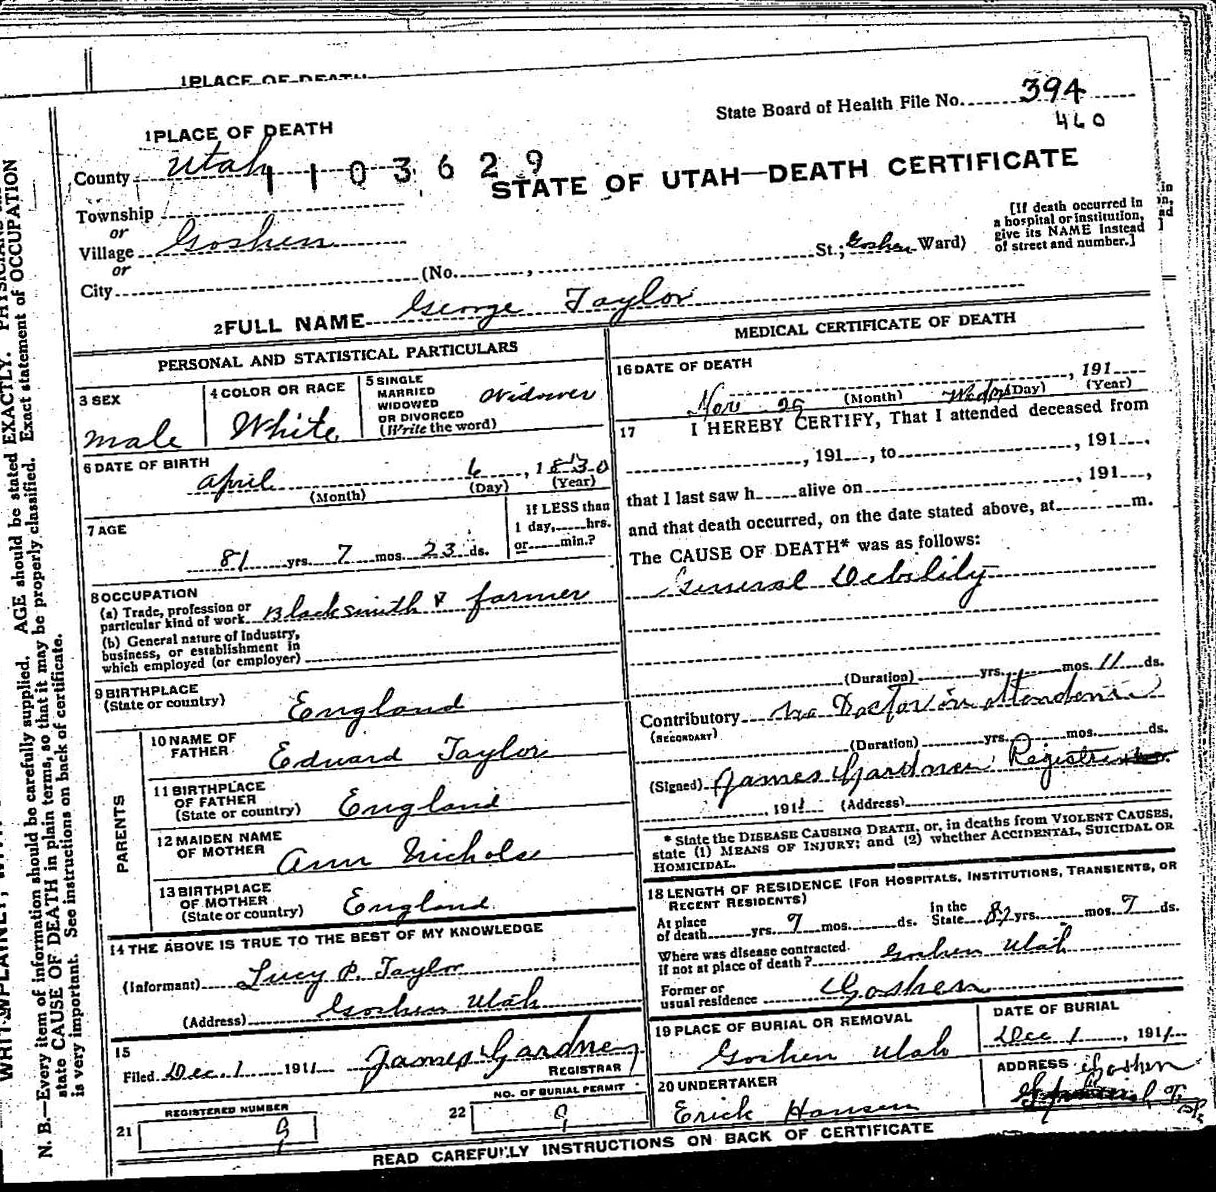 1 PLACE OF DEATH
State Board of Health File No. 394
460
1 PLACE OF DEATH
County Utah
1103629
STATE OF UTAH—DEATH CERTIFICATE
Township
or
Village Goshen
or
City (No. , St.; Goshen Ward)
[If death occurred in
a hospital or institution,
give its NAME instead
of street and number.]
2 FULL NAME George Taylor
PERSONAL AND STATISTICAL PARTICULARS
3 SEX
male
4 COLOR OR RACE
White
5 SINGLE
MARRIED
WIDOWED
OR DIVORCED
(Write the word)
Widower
6 DATE OF BIRTH
April 6, 1830
(Month) (Day) (Year)
7 AGE
81 yrs. 7 mos. 23 ds.
If LESS than
1 day, hrs.
or min.?
8 OCCUPATION
(a) Trade, profession or
particular kind of work Blacksmith & farmer
(b) General nature of industry,
business, or establishment in
which employed (or employer)
9 BIRTHPLACE
(State or country) England
PARENTS
10 NAME OF
FATHER Edward Taylor
11 BIRTHPLACE
OF FATHER
(State or country) England
12 MAIDEN NAME
OF MOTHER Ann Nichols
13 BIRTHPLACE
OF MOTHER
(State or country) England
14 THE ABOVE IS TRUE TO THE BEST OF MY KNOWLEDGE
(Informant) Lucy P. Taylor
(Address) Goshen Utah
15
Filed Dec. 1 1911 James Gardner
REGISTRAR
REGISTERED NUMBER
21 9
NO. OF BURIAL PERMIT
22 9
MEDICAL CERTIFICATE OF DEATH
16 DATE OF DEATH
Nov 29 , 191
(Month) (Day) (Year)
17 I HEREBY CERTIFY, That I attended deceased from
, 191 , to , 191 ,
that I last saw h alive on , 191 ,
and that death occurred, on the date stated above, at m.
The CAUSE OF DEATH* was as follows:
General Debility
(Duration) yrs. mos. 11 ds.
Contributory No Doctor in
(SECONDARY)
(Duration) yrs. mos. ds.
(Signed) James Gardner
, 1911 (Address)
* State the DISEASE CAUSING DEATH, or, in deaths from VIOLENT CAUSES,
state (1) MEANS OF INJURY; and (2) whether ACCIDENTAL, SUICIDAL OR
HOMICIDAL.
18 LENGTH OF RESIDENCE (FOR HOSPITALS, INSTITUTIONS, TRANSIENTS, OR
RECENT RESIDENTS)
At place
of death yrs. 7 mos. ds. In the
State yrs. mos. 7 ds.
Where was disease contracted
if not at place of death? Goshen Utah
Former or
usual residence Goshen
19 PLACE OF BURIAL OR REMOVAL
Goshen Utah
DATE OF BURIAL
Dec 1 , 1911
20 UNDERTAKER
Erick Hansen
ADDRESS Goshen
READ CAREFULLY INSTRUCTIONS ON BACK OF CERTIFICATE
N. B.—Every item of information should be carefully supplied. AGE should be stated EXACTLY. PHYSICIANS
state CAUSE OF DEATH in plain terms, so that it may be properly classified. Exact statement of OCCUPATION
is very important. See instructions on back of certificate.